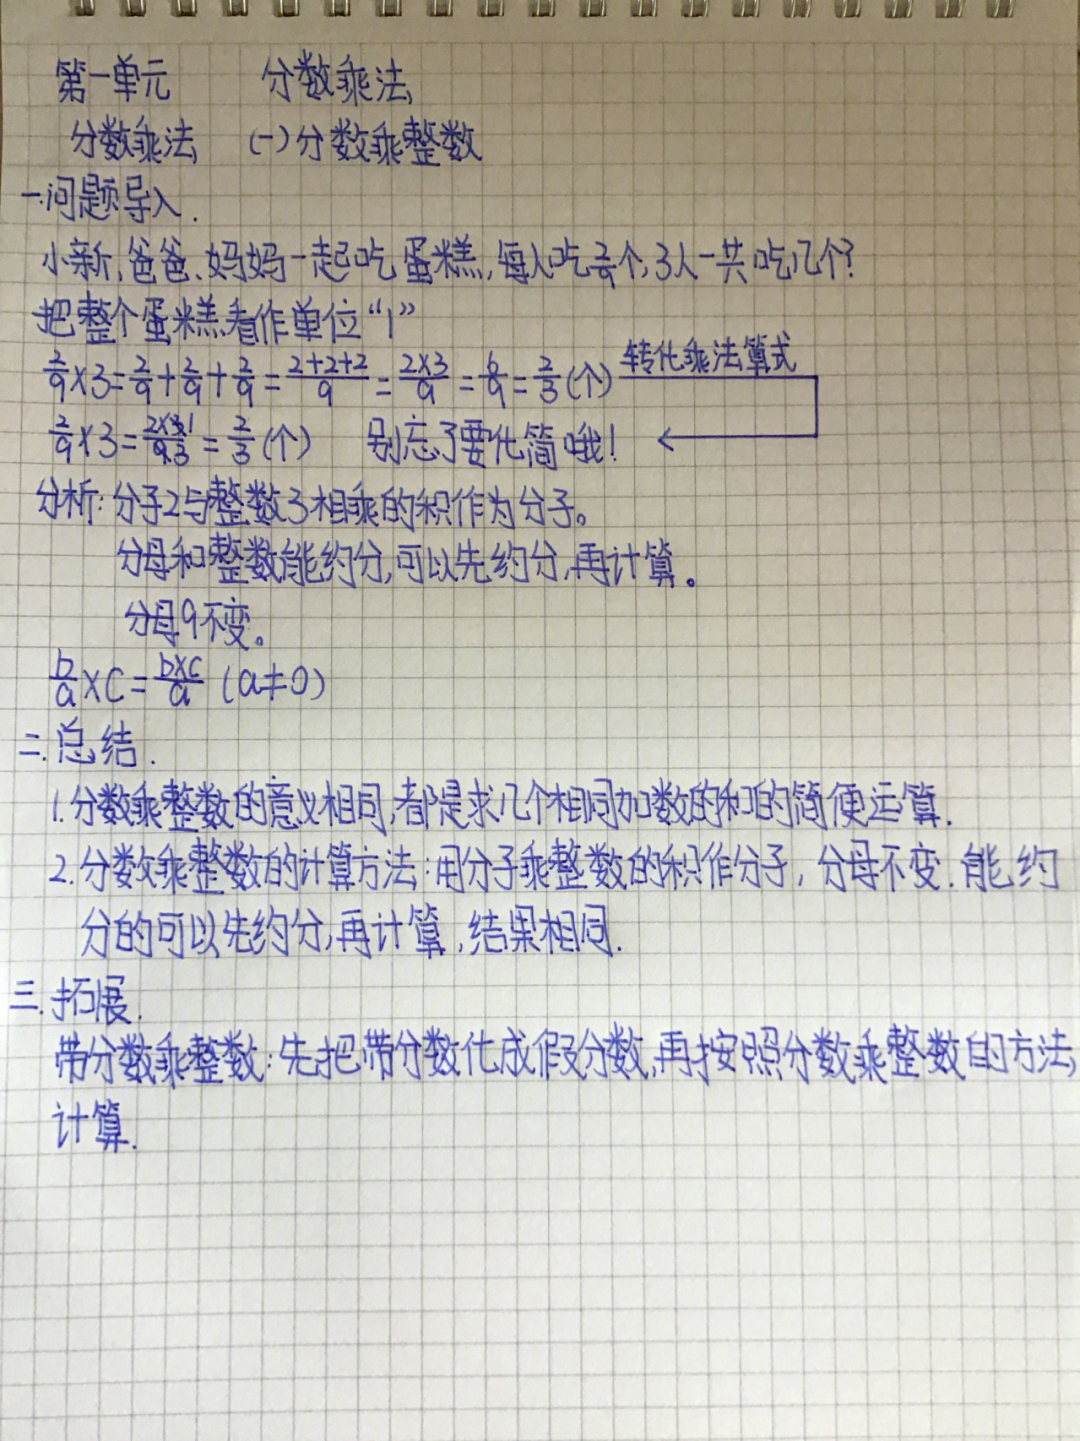 第一单元 分数乘法
分数乘法 (一)分数乘整数
一.问题导入.
小新、爸爸、妈妈一起吃蛋糕,每人吃2/9个,3人一共吃几个?
把整个蛋糕看作单位“1”
2/9×3=2/9+2/9+2/9=2+2+2/9=2×3/9=6/9=2/3(个) 转化乘法算式
2/9×3=2×3 1/9 3=2/3(个) 别忘了要化简哦! ←
分析:分子2与整数3相乘的积作为分子。
分母和整数能约分,可以先约分,再计算。
分母9不变。
b/a×c=b×c/a (a≠0)
二.总结.
1.分数乘整数的意义相同,都是求几个相同加数的和的简便运算.
2.分数乘整数的计算方法:用分子乘整数的积作分子,分母不变.能约
分的可以先约分,再计算,结果相同.
三.拓展.
带分数乘整数:先把带分数化成假分数,再按照分数乘整数的方法,
计算.